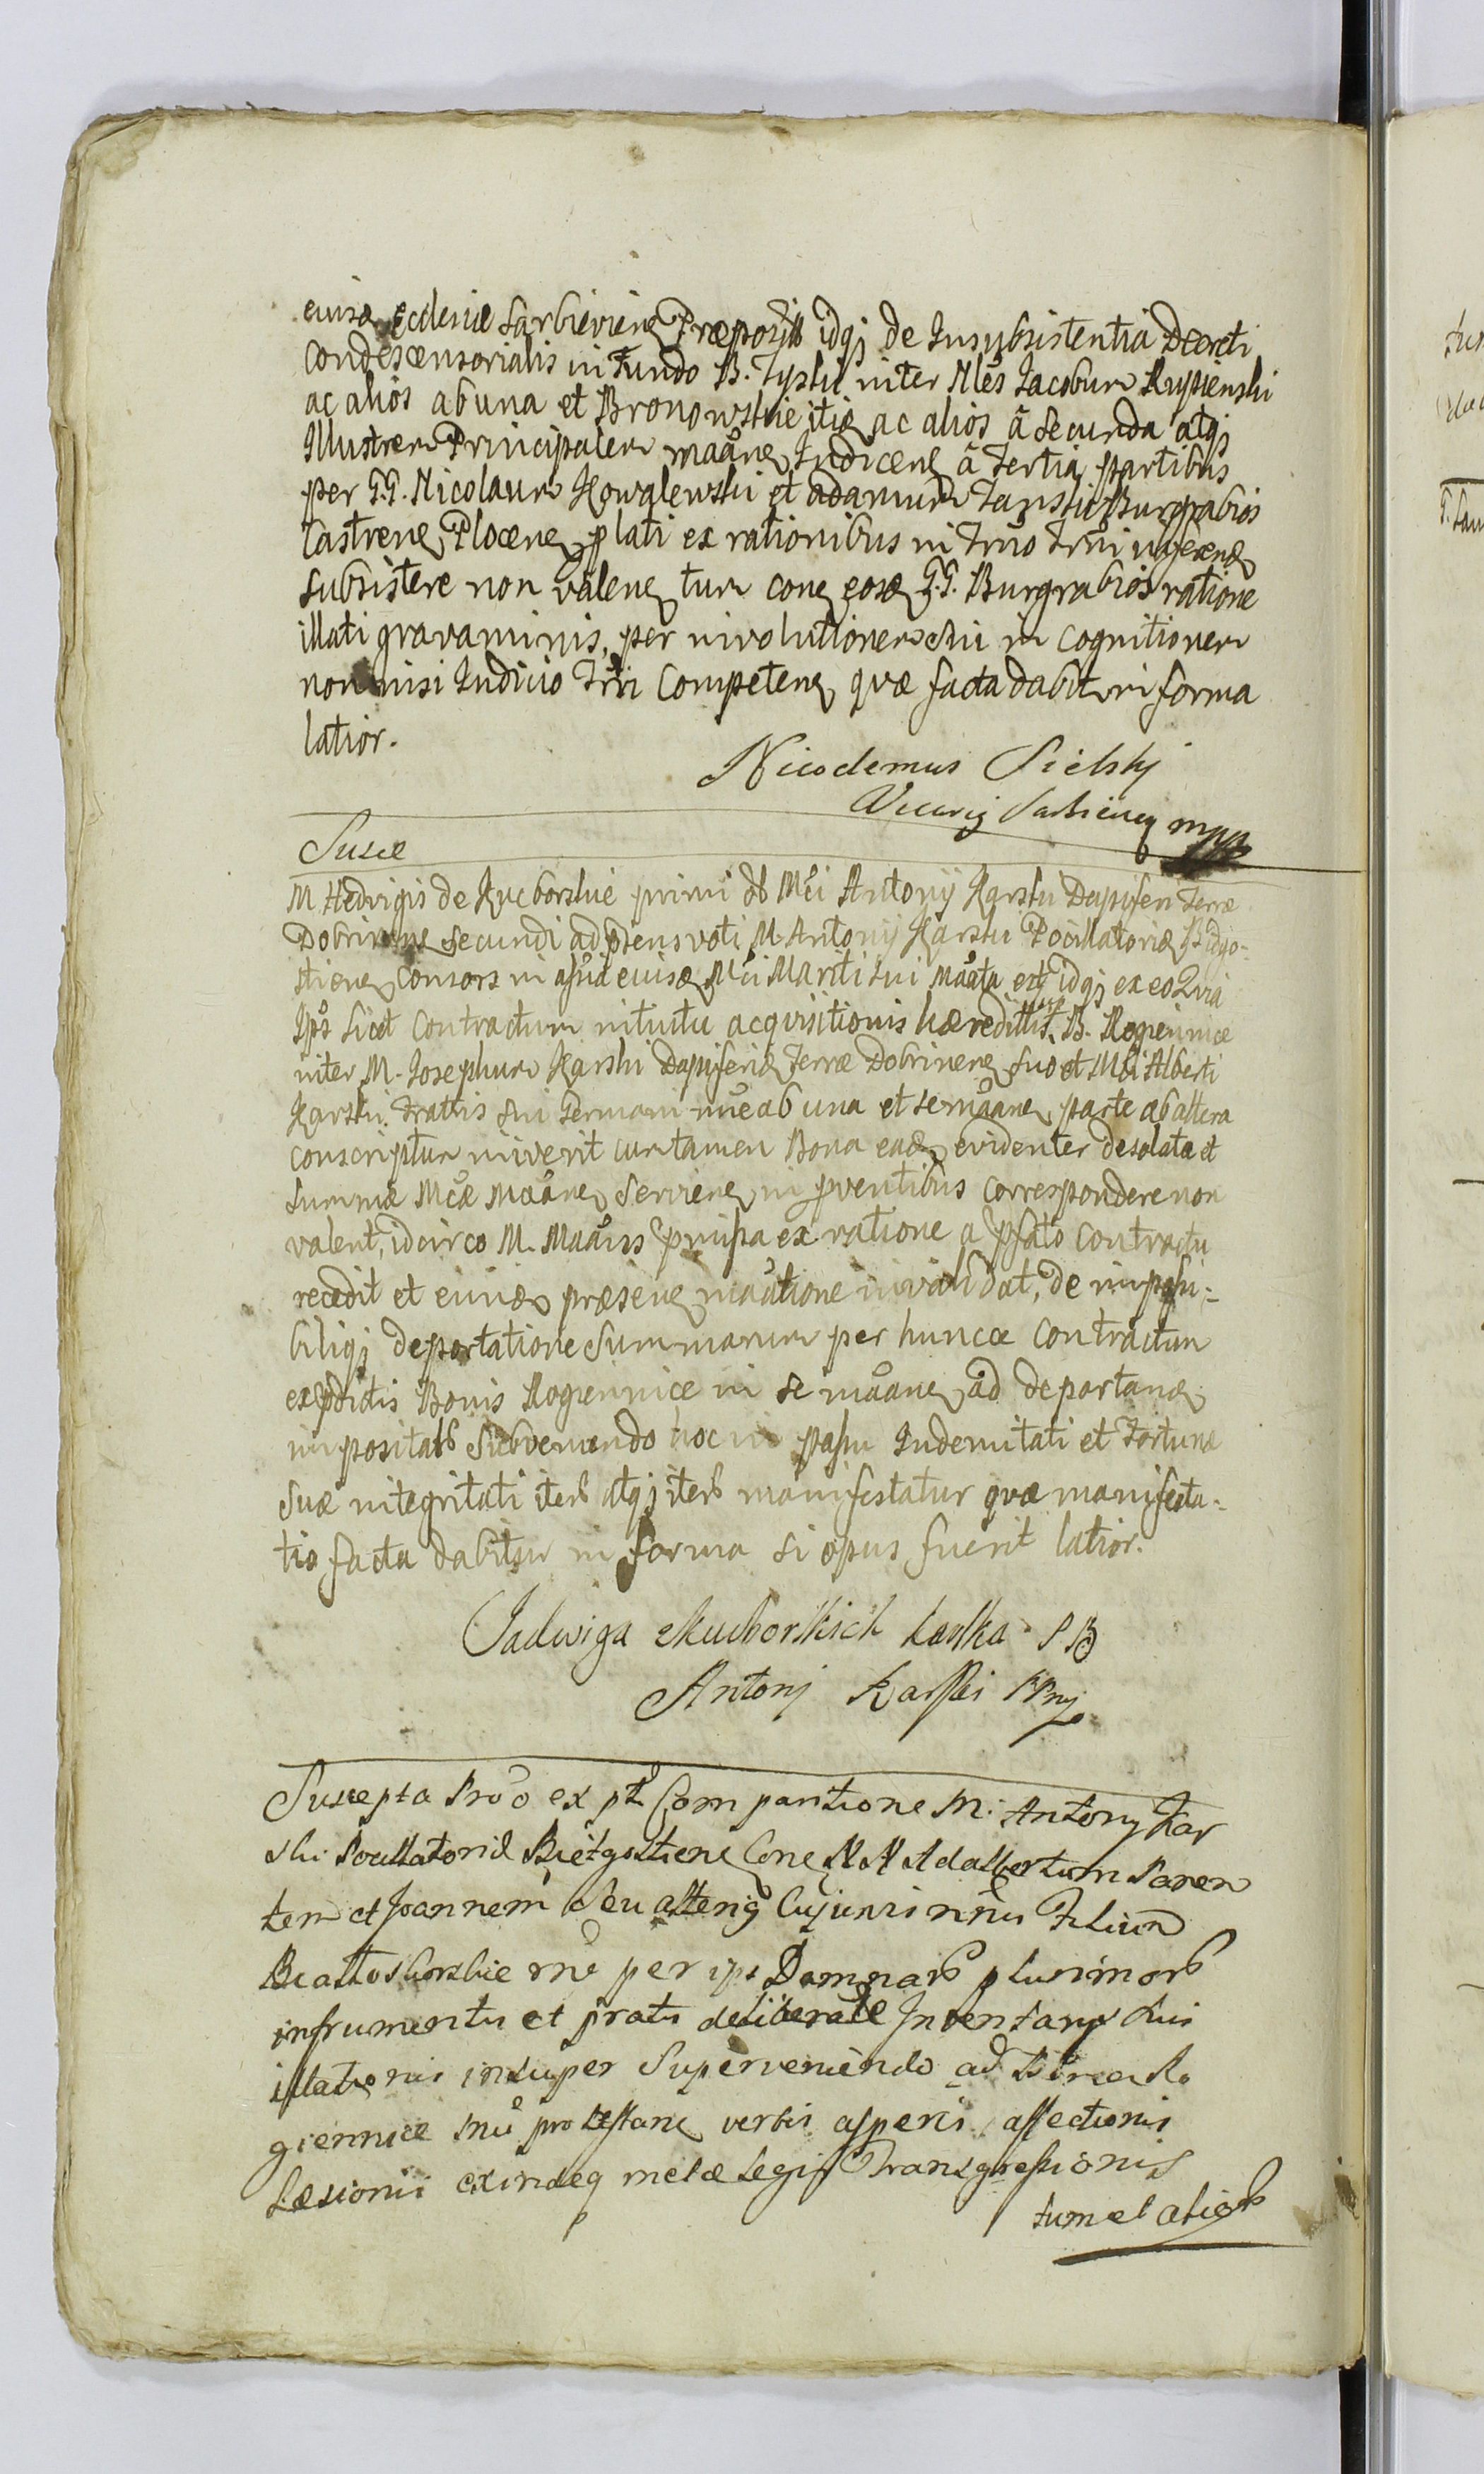 eiusd Ecclesiæ Sarbieviene Præpositi idqꝫ de Insubsistentia Dcereti
Condescensorialis in Fundo B. Tyski inter Nles Jacobum Rupienski
ac alios ab una et Bronowskie itid ac alios â secunda atqꝫ
Illustrem Principalem maâne Judicene â Tertia partibus
per G.G. Nicolaum Kowalewski et Adamum Janski Burgrabios
Castrene Plocene plati ex rationibus in Trno Trni
subsistere non valene tum cone eosd G.G. Burgrabios ratione
illati gravaminis, per involutionem sui in cognitionem
non nisi Judicio Trri Competene quæ facta dabitur in forma
latior.
Nicodemus Sielskj
Vicarig Sarbieveg mpp
Susce
M. Hedvigis de Kucborskie primi et Mci Antonij Karski Dapiferi Terræ
Dobrinene secundi ad præns voti M. Antonij Karski Pocillatorid Bidgo-
stiene consors in assia eiusd Mci Mariti sui maâta est idqꝫ ex eo Quia
Ips sicot Contractum intuitu acqvisitionis hæreditatis B. Rogiennice
inter M. Josephum Karski Dapiferid Terræ Dobrinene suo et Mci Alberti
Karski Fratris sui Germani nne ab una et se maâne parte ab altera
conscriptum iniverit cum tamen Bona ead evidenter desolata et
summæ Mcæ Maâne serviene in pventibus correspondere non
valent, idcirco M. Maâns pmissa ex ratione a pfato Contractu
recedit et eund præsene maâtione invalidat, de impossi-
biliqꝫ deportatione summarum per huncce Contractum
ex pdictis Bonis Rogiennice in se maâne ad deportand
impositarb subveniendo hoc in passu Indemnitati et Fortunæ
suæ integritati iterb atqꝫ iterb manifestatur qvæ manifesta-
tio facta dabitur in forma si opus fuerit latior.
Jadwiga zKucborskich Karska P B
Antonj Karski PPmj
Suscepta Pro o ex pt Comparitione M. Antonij Kar
ski Pocillatorid Bidgostiene Cone N N Adalbertum Paren
tem et Joannem seu alterig Cujusvis nnis Filium
Białłoskorskie rne per ips Damnorb plurimorb
in frumentis et pratis deliberate Inventarijs suis
illationis insuper superveniendo ad Bona Ro
giennice Mu protestane verbis asperis affectionis
Læsionis exindeq metæ Legis Transgressionis
tum et aliorb